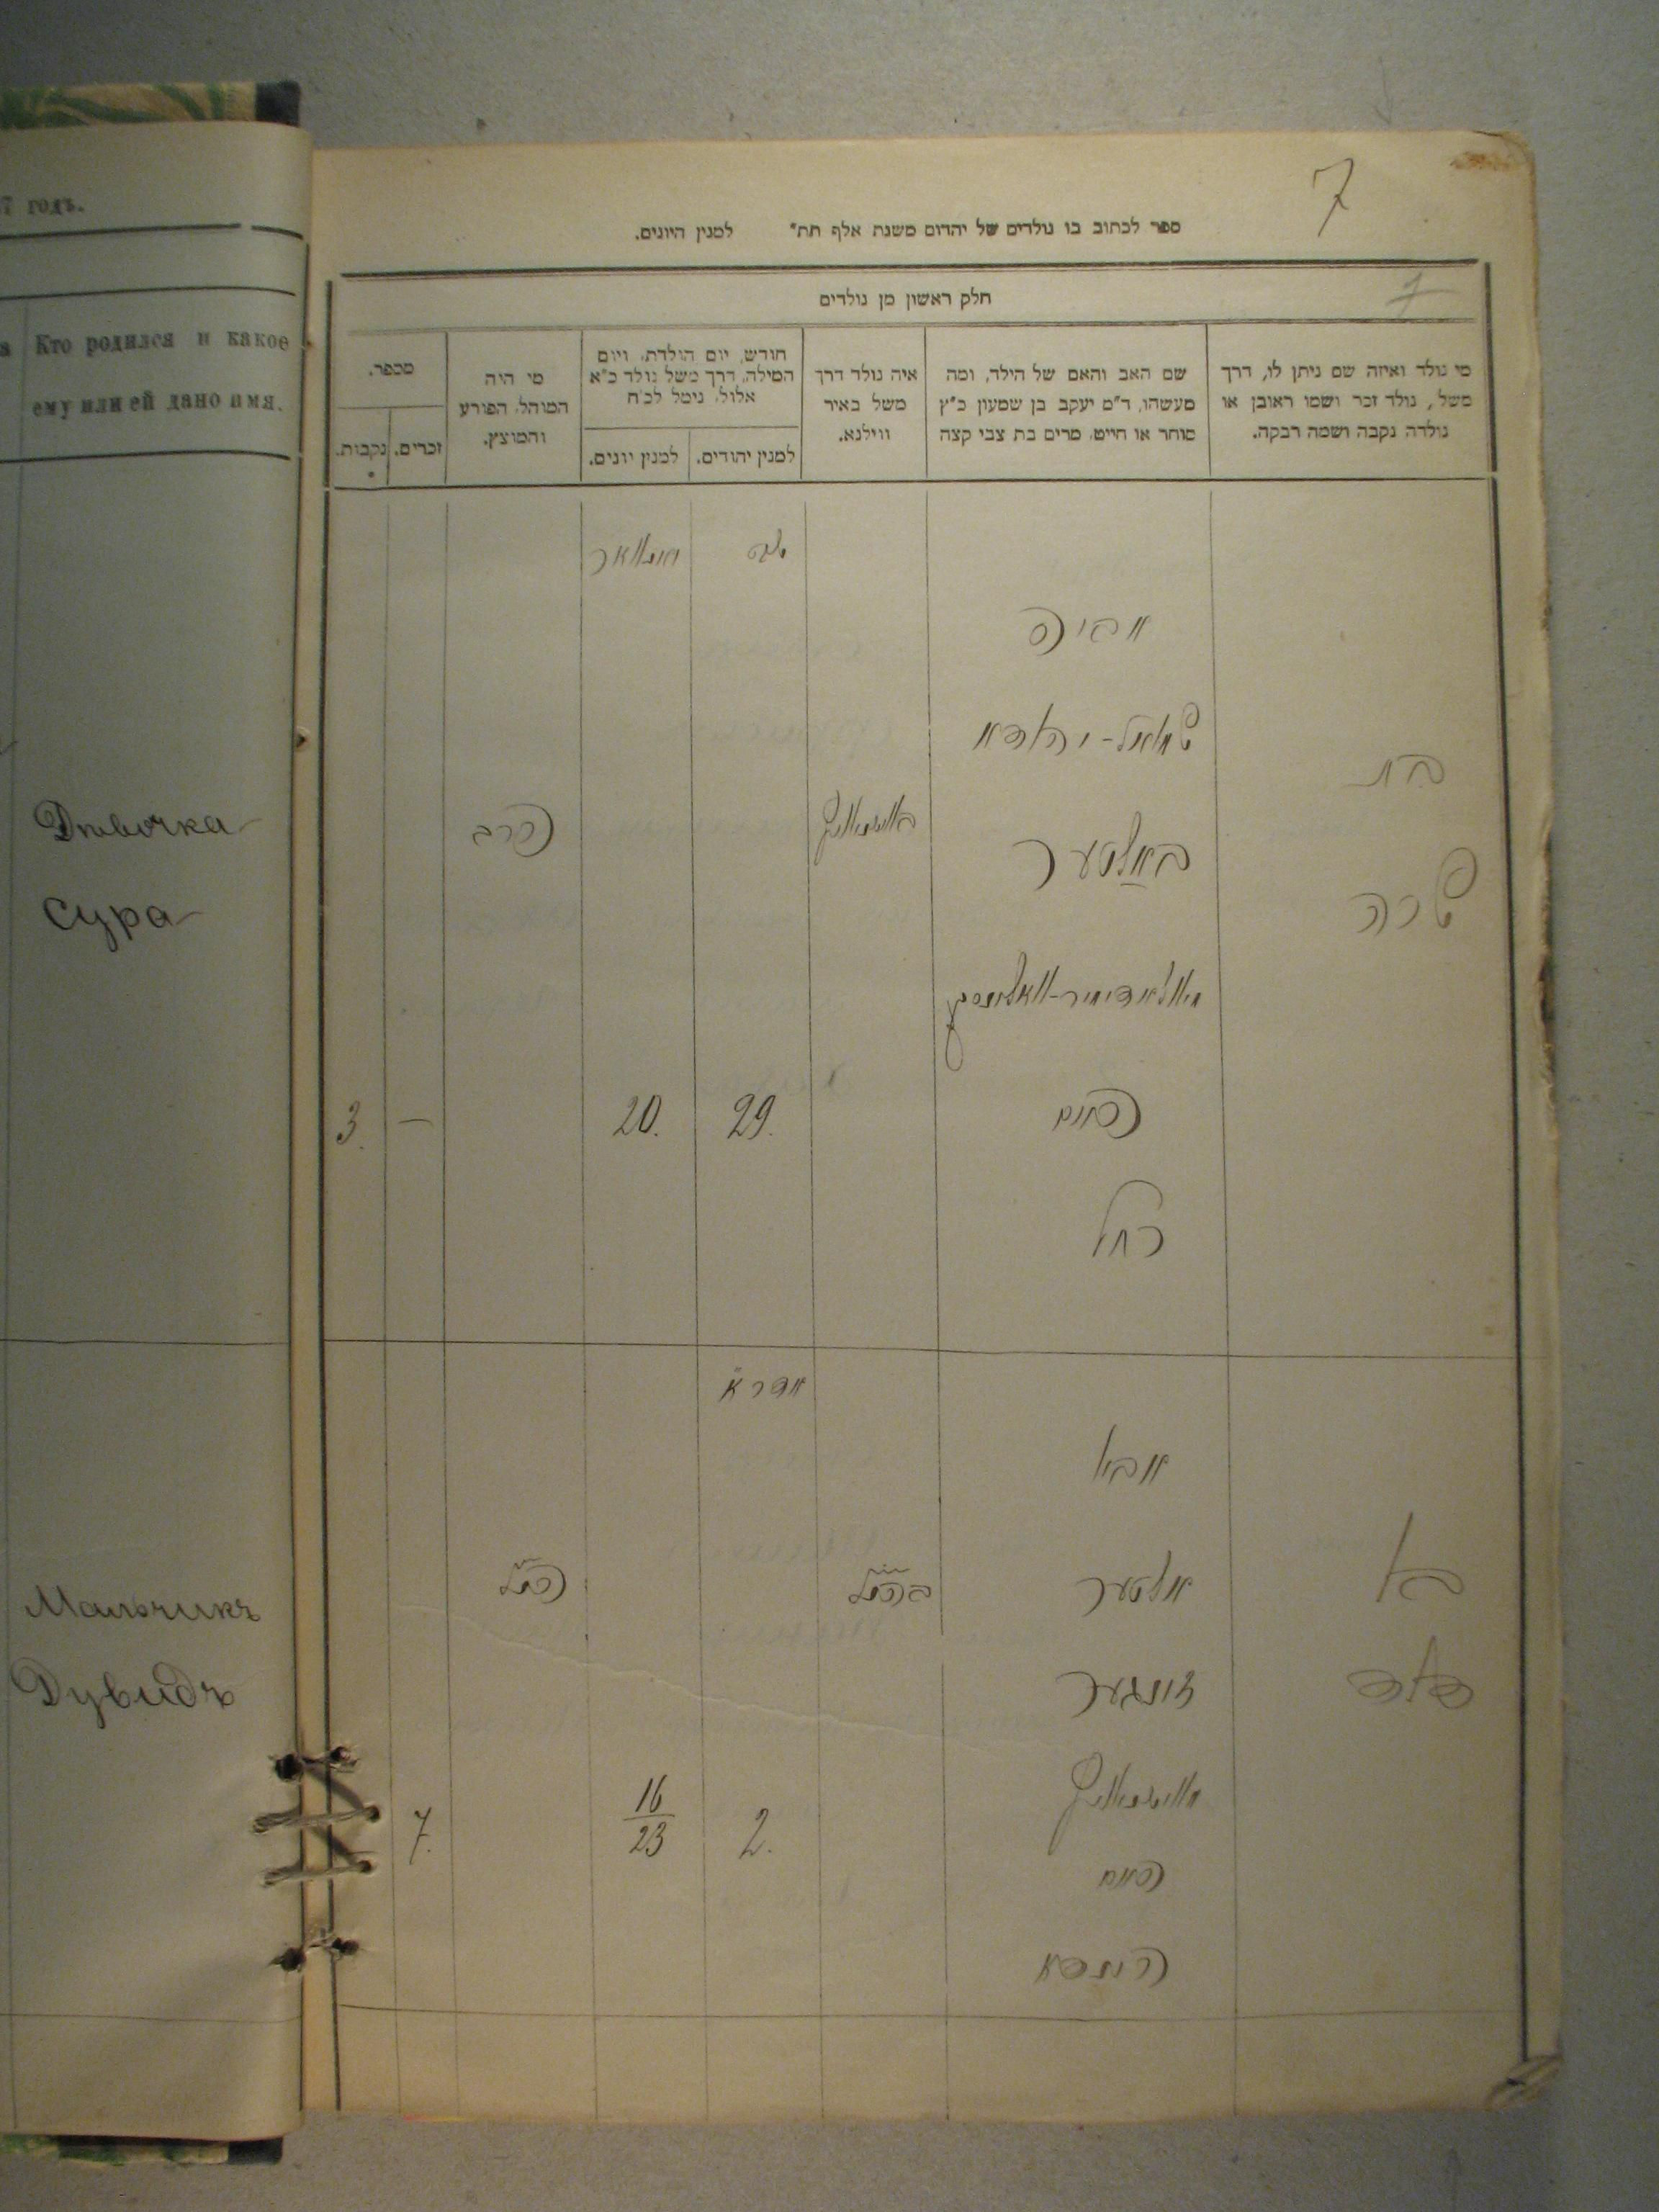 7 годъ.
Кто родился и какое
ему или ей дано имя.
Дѣвочка
Сура
Мальчикъ
Дувидъ
7
ספר לכתוב בו נולדים של יהדום משנת אלף תת״ למנין היונים.
חלק ראשון מן נולדים
7
מי נולד ואיזה שם ניתן לו, דרך
משל, נולד זכר ושמו ראובן או
נולדה נקבה ושמה רבקה.
שם האב והאם של הילד, ומה
מעשהו, ד״מ יעקב בן שמעון כ״ץ
סוחר או חייט, מרים בת צבי קצה
איה נולד דרך
משל באיר
ווילנא.
חודש, יום הולדת, ויום
המילה, דרך משל נולד כ״א
אלול, נימל לכ״ח
למנין יהודים.
למנין יונים.
מי היה
המוהל, הפורע
והמוצץ.
מספר.
זכרים.
נקבות.
שבט
יאנואר
אביהּ
שמואל-יודא
באלטער
הרב
בת
שרה
29.
20.
—
3.
האם
רחל
אדר א
אביו
אלטער
זינגער
הנ״ל
בהנ״ל
בן
דוד
האם
הינדא
2.
16
23
7.